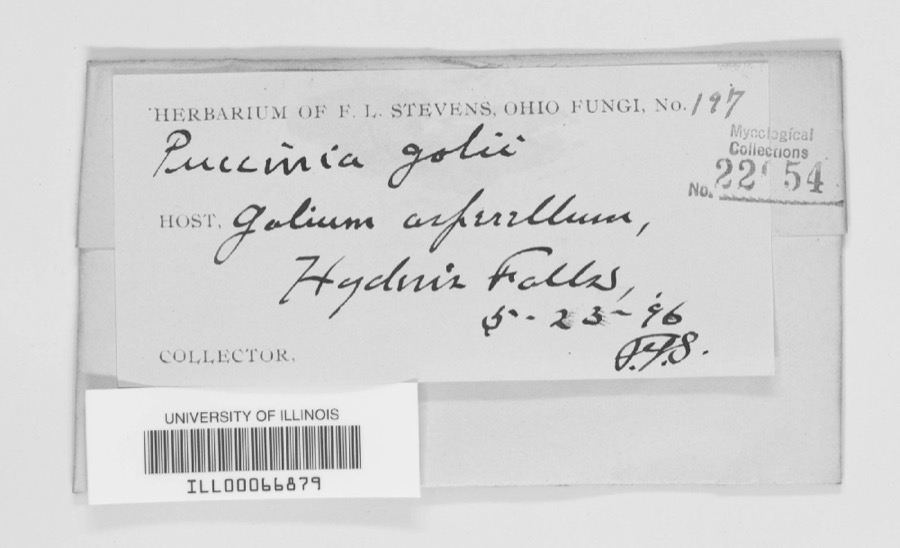 HERBARIUM OF F. L. STEVENS, OHIO FUNGI, No. 197
Puccinia galii
Mycological
Collections
No.
HOST. Galium asprellum,
Falls,
5-23-96
COLLECTOR.
UNIVERSITY OF ILLINOIS
ILL00066879